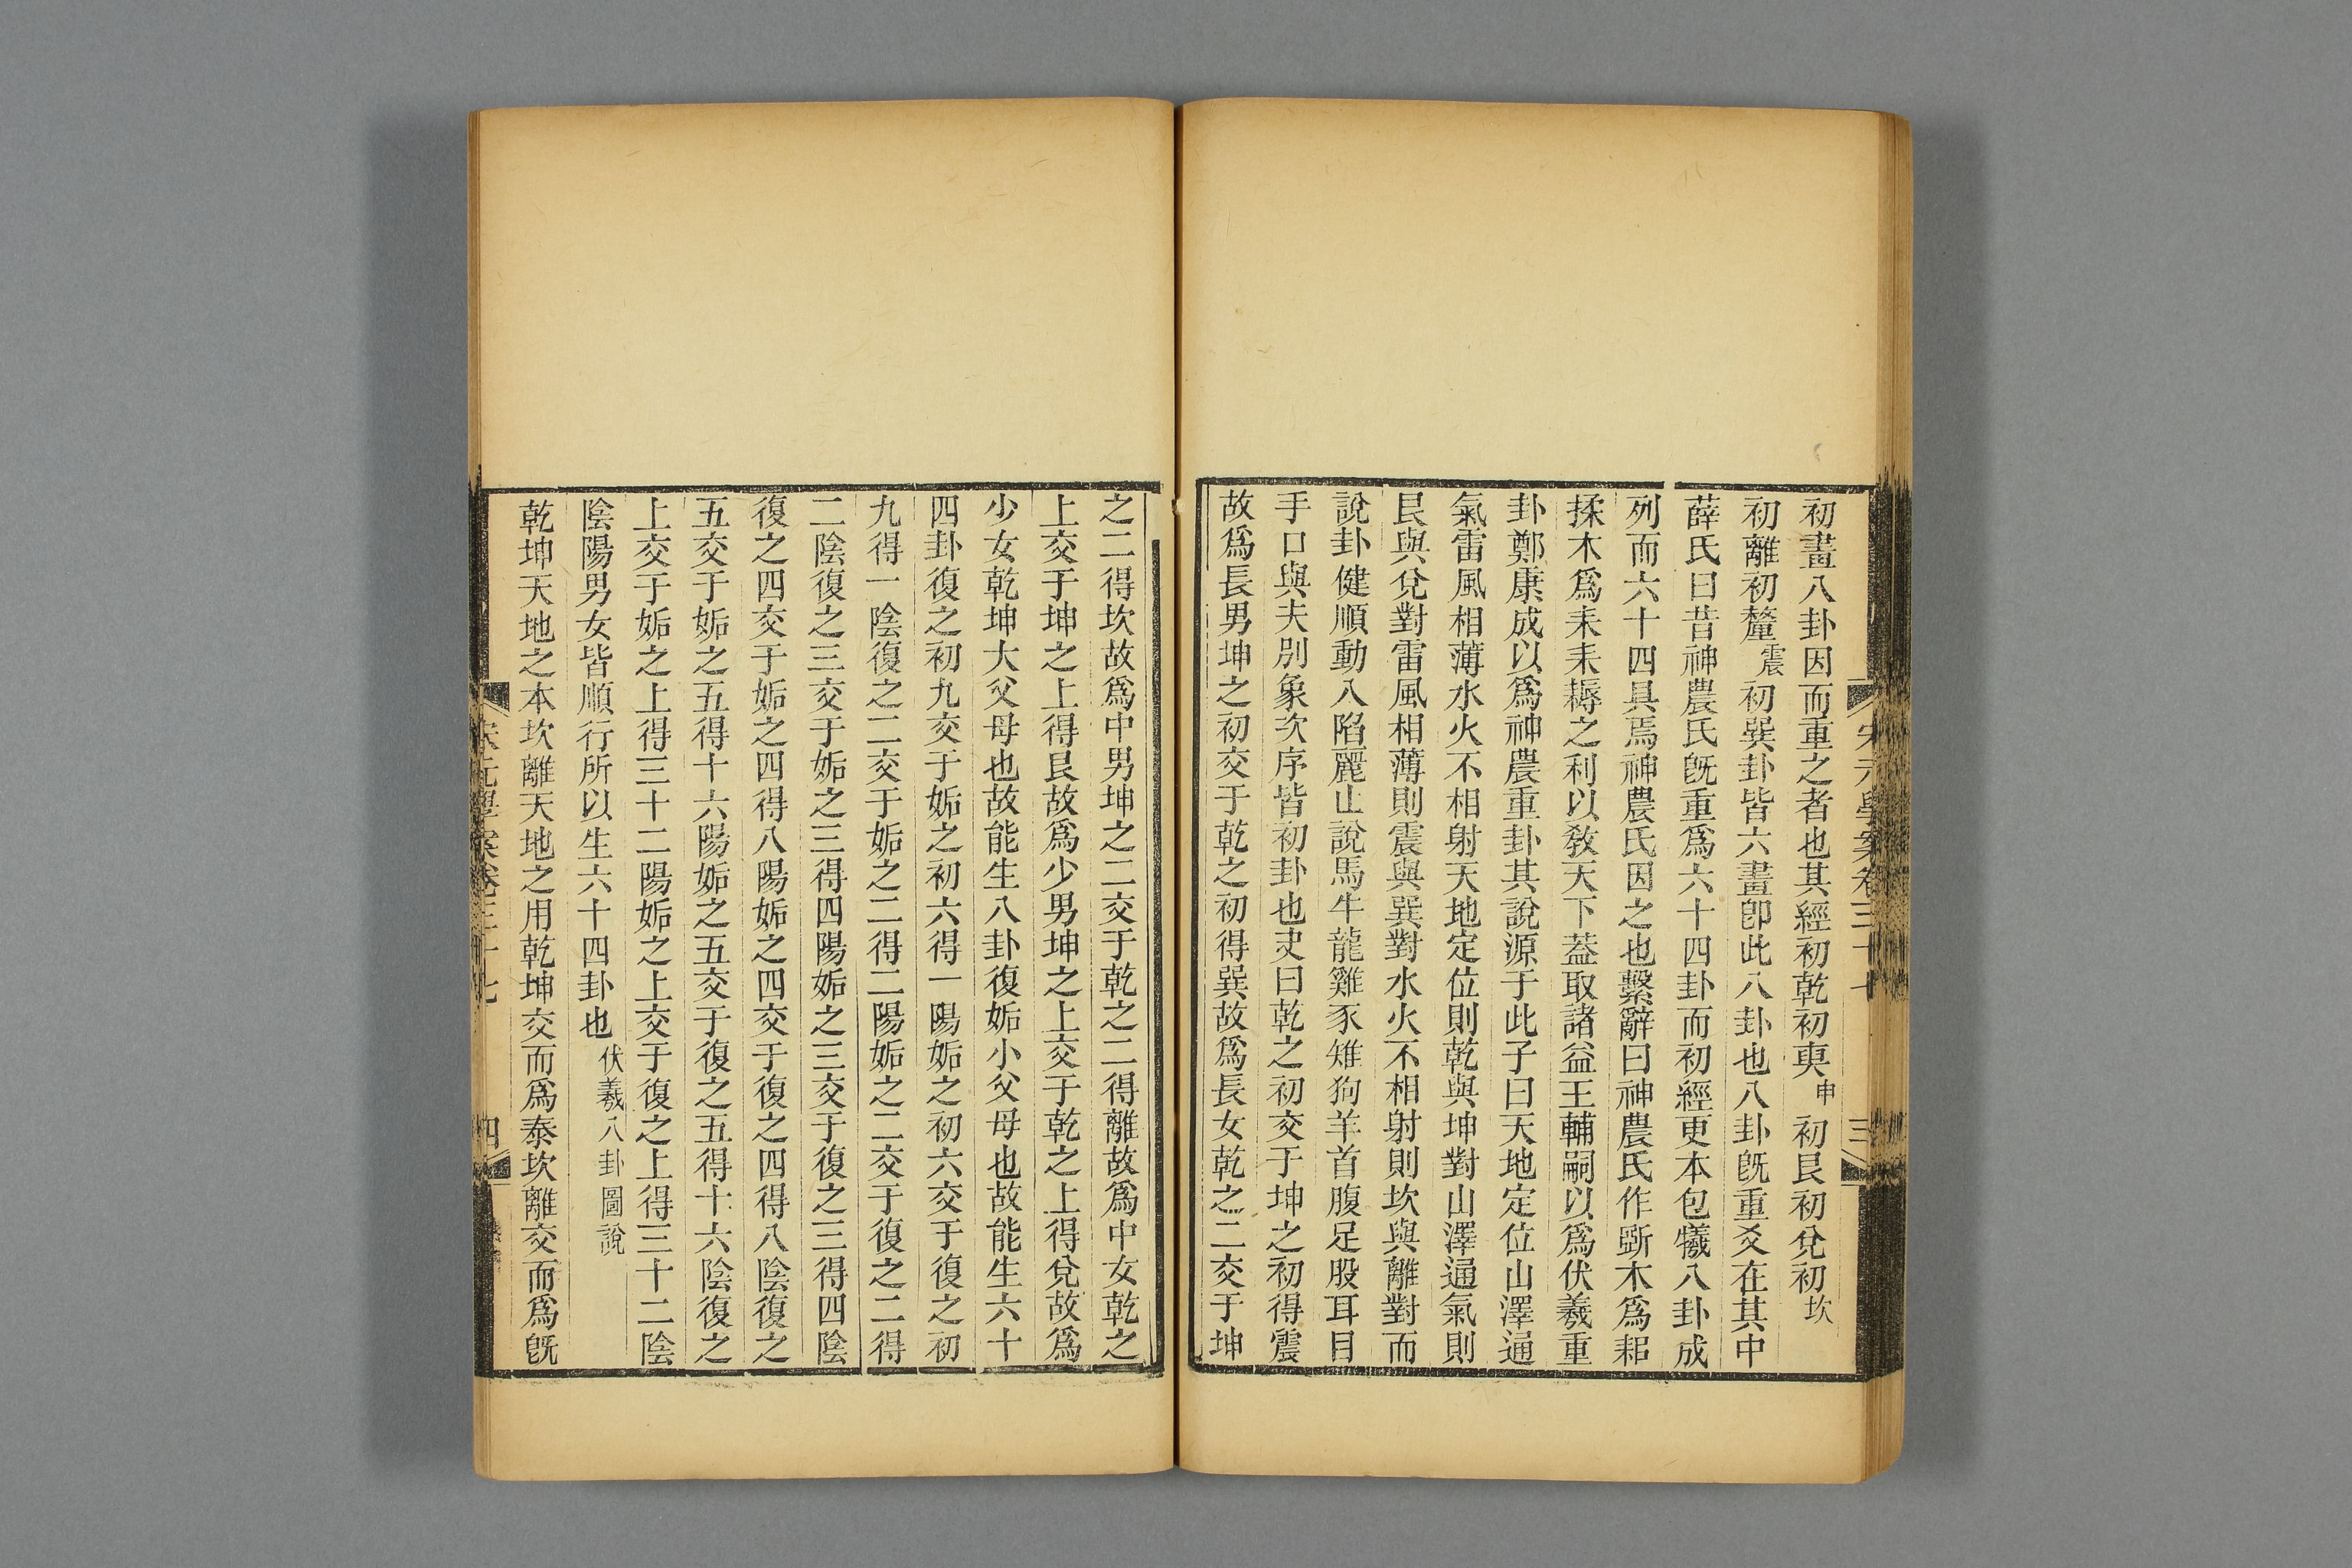 初畫八卦因而重之者也其經初乾初㐪申初艮初兌初坎
初離初釐震初巽卦皆六畫卽此八卦也八卦旣重爻在其中
薛氏曰昔神農氏旣重爲六十四卦而初經更本包犧八卦成
列而六十四具焉神農氏因之也繫辭曰神農氏作斲木爲耜
揉木爲耒耒耨之利以敎天下葢取諸益王輔嗣以爲伏羲重
卦鄭康成以爲神農重卦其說源于此子曰天地定位山澤通
氣雷風相薄水火不相射天地定位則乾與坤對山澤通氣則
艮與兌對雷風相薄則震與巽對水火不相射則坎與離對而
說卦健順動入陷麗止說馬牛龍雞豕雉狗羊首腹足股耳目
手口與夫別象次序皆初卦也夬曰乾之初交于坤之初得震
故爲長男坤之初交于乾之初得巽故爲長女乾之二交于坤
之二得坎故爲中男坤之二交于乾之二得離故爲中女乾之
上交于坤之上得艮故爲少男坤之上交于乾之上得兌故爲
少女乾坤大父母也故能生八卦復姤小父母也故能生六十
四卦復之初九交于姤之初六得一陽姤之初六交于復之初
九得一陰復之二交于姤之二得二陽姤之二交于復之二得
二陰復之三交于姤之三得四陽姤之三交于復之三得四陰
復之四交于姤之四得八陽姤之四交于復之四得八陰復之
五交于姤之五得十六陽姤之五交于復之五得十六陰復之
上交于姤之上得三十二陽姤之上交于復之上得三十二陰
陰陽男女皆順行所以生六十四卦也伏羲八卦圖說
乾坤天地之本坎離天地之用乾坤交而爲泰坎離交而爲旣
宋元學案卷三十七
四